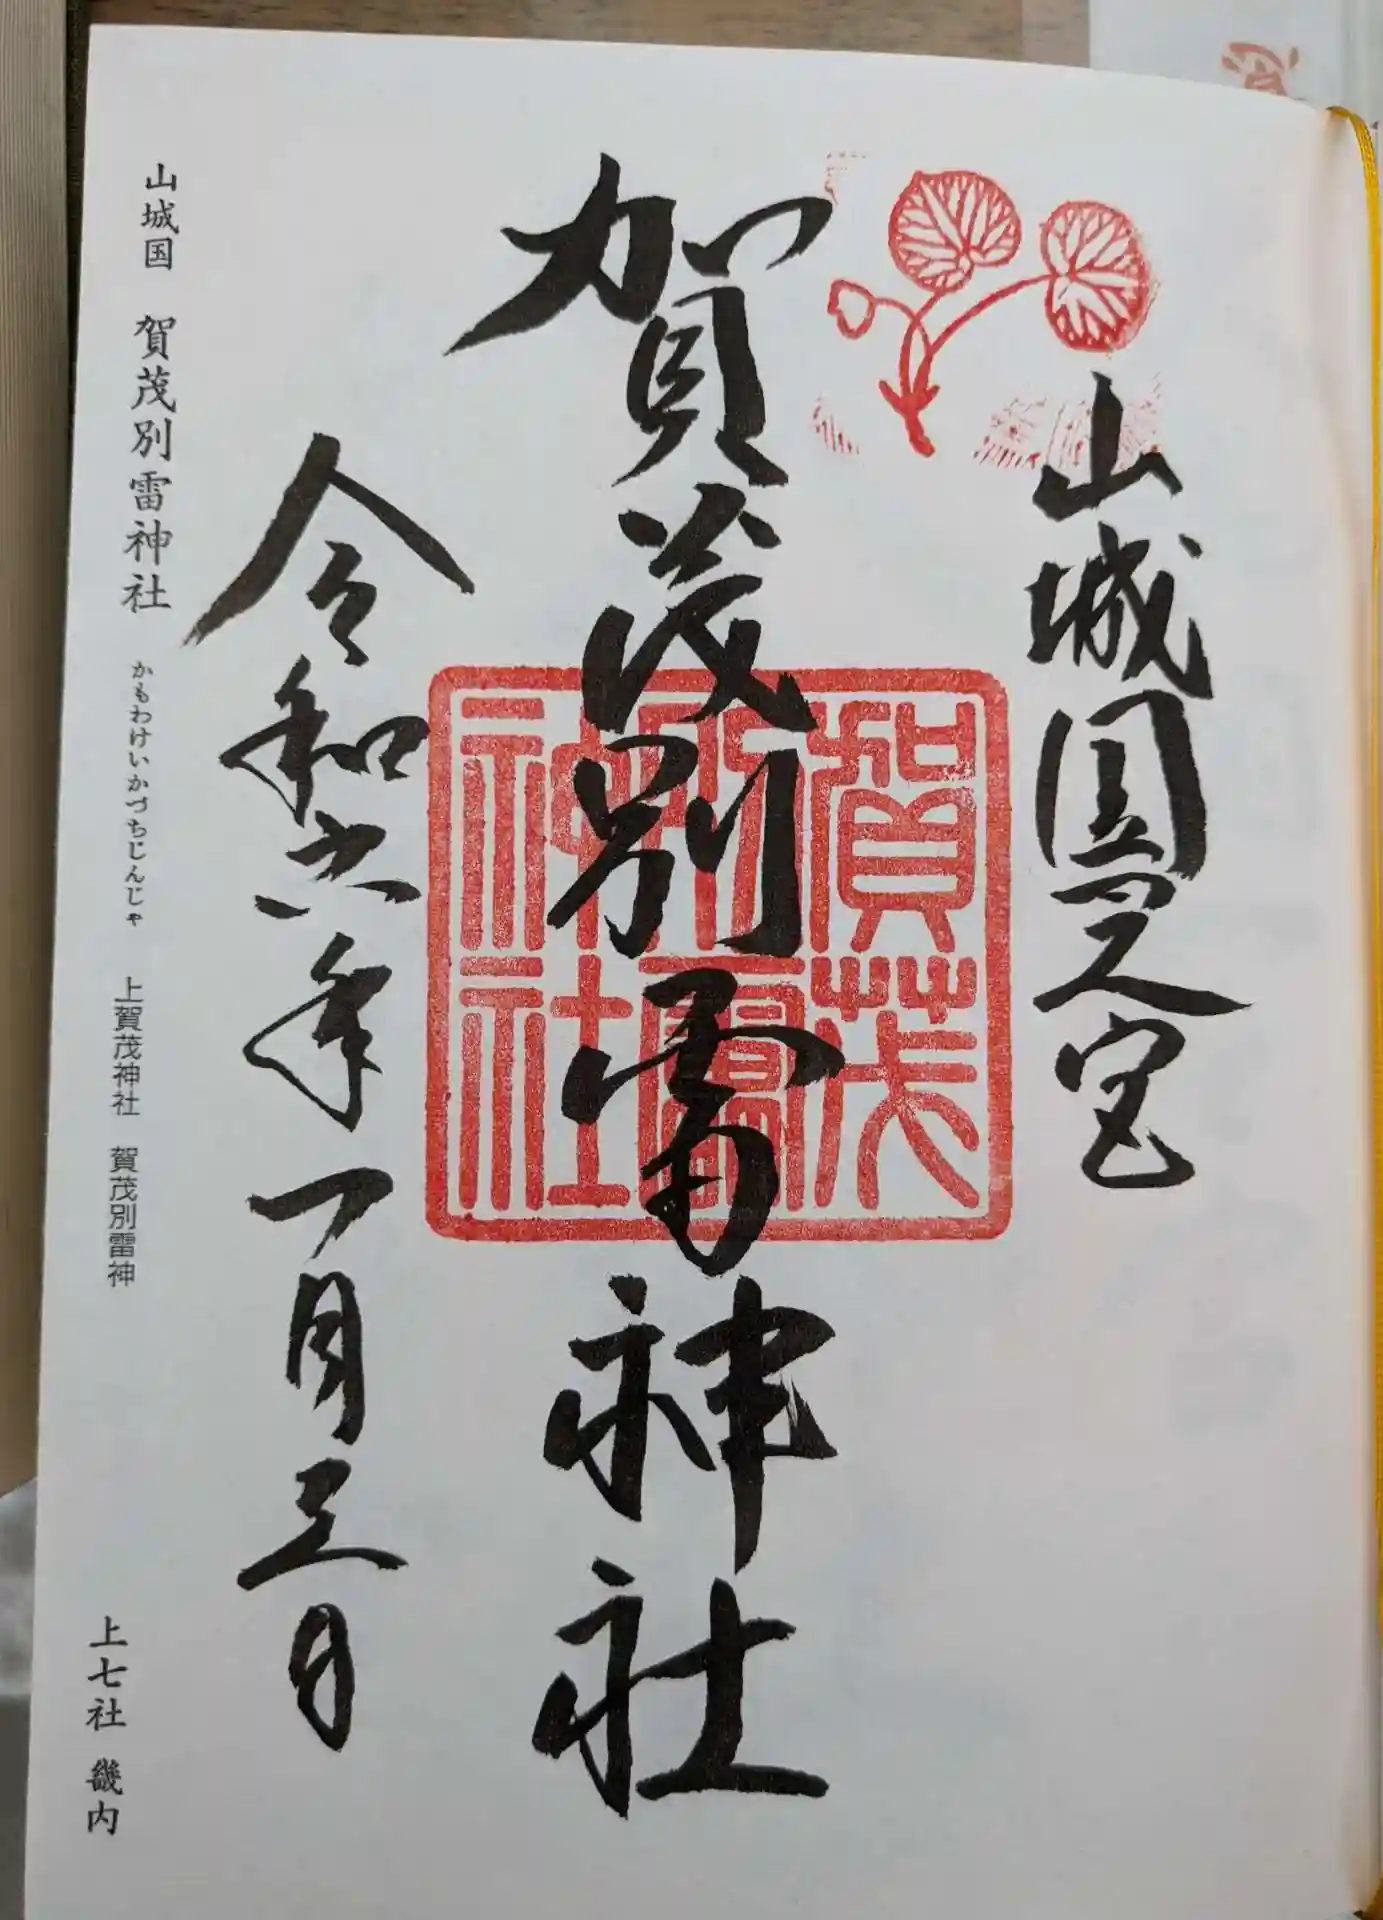 山城国一之宮
賀茂別雷神社
賀茂
別雷
神社
令和六年一月三日
山城国 賀茂別雷神社 かもわけいかづちじんじゃ 上賀茂神社 賀茂別雷神
上七社 畿内